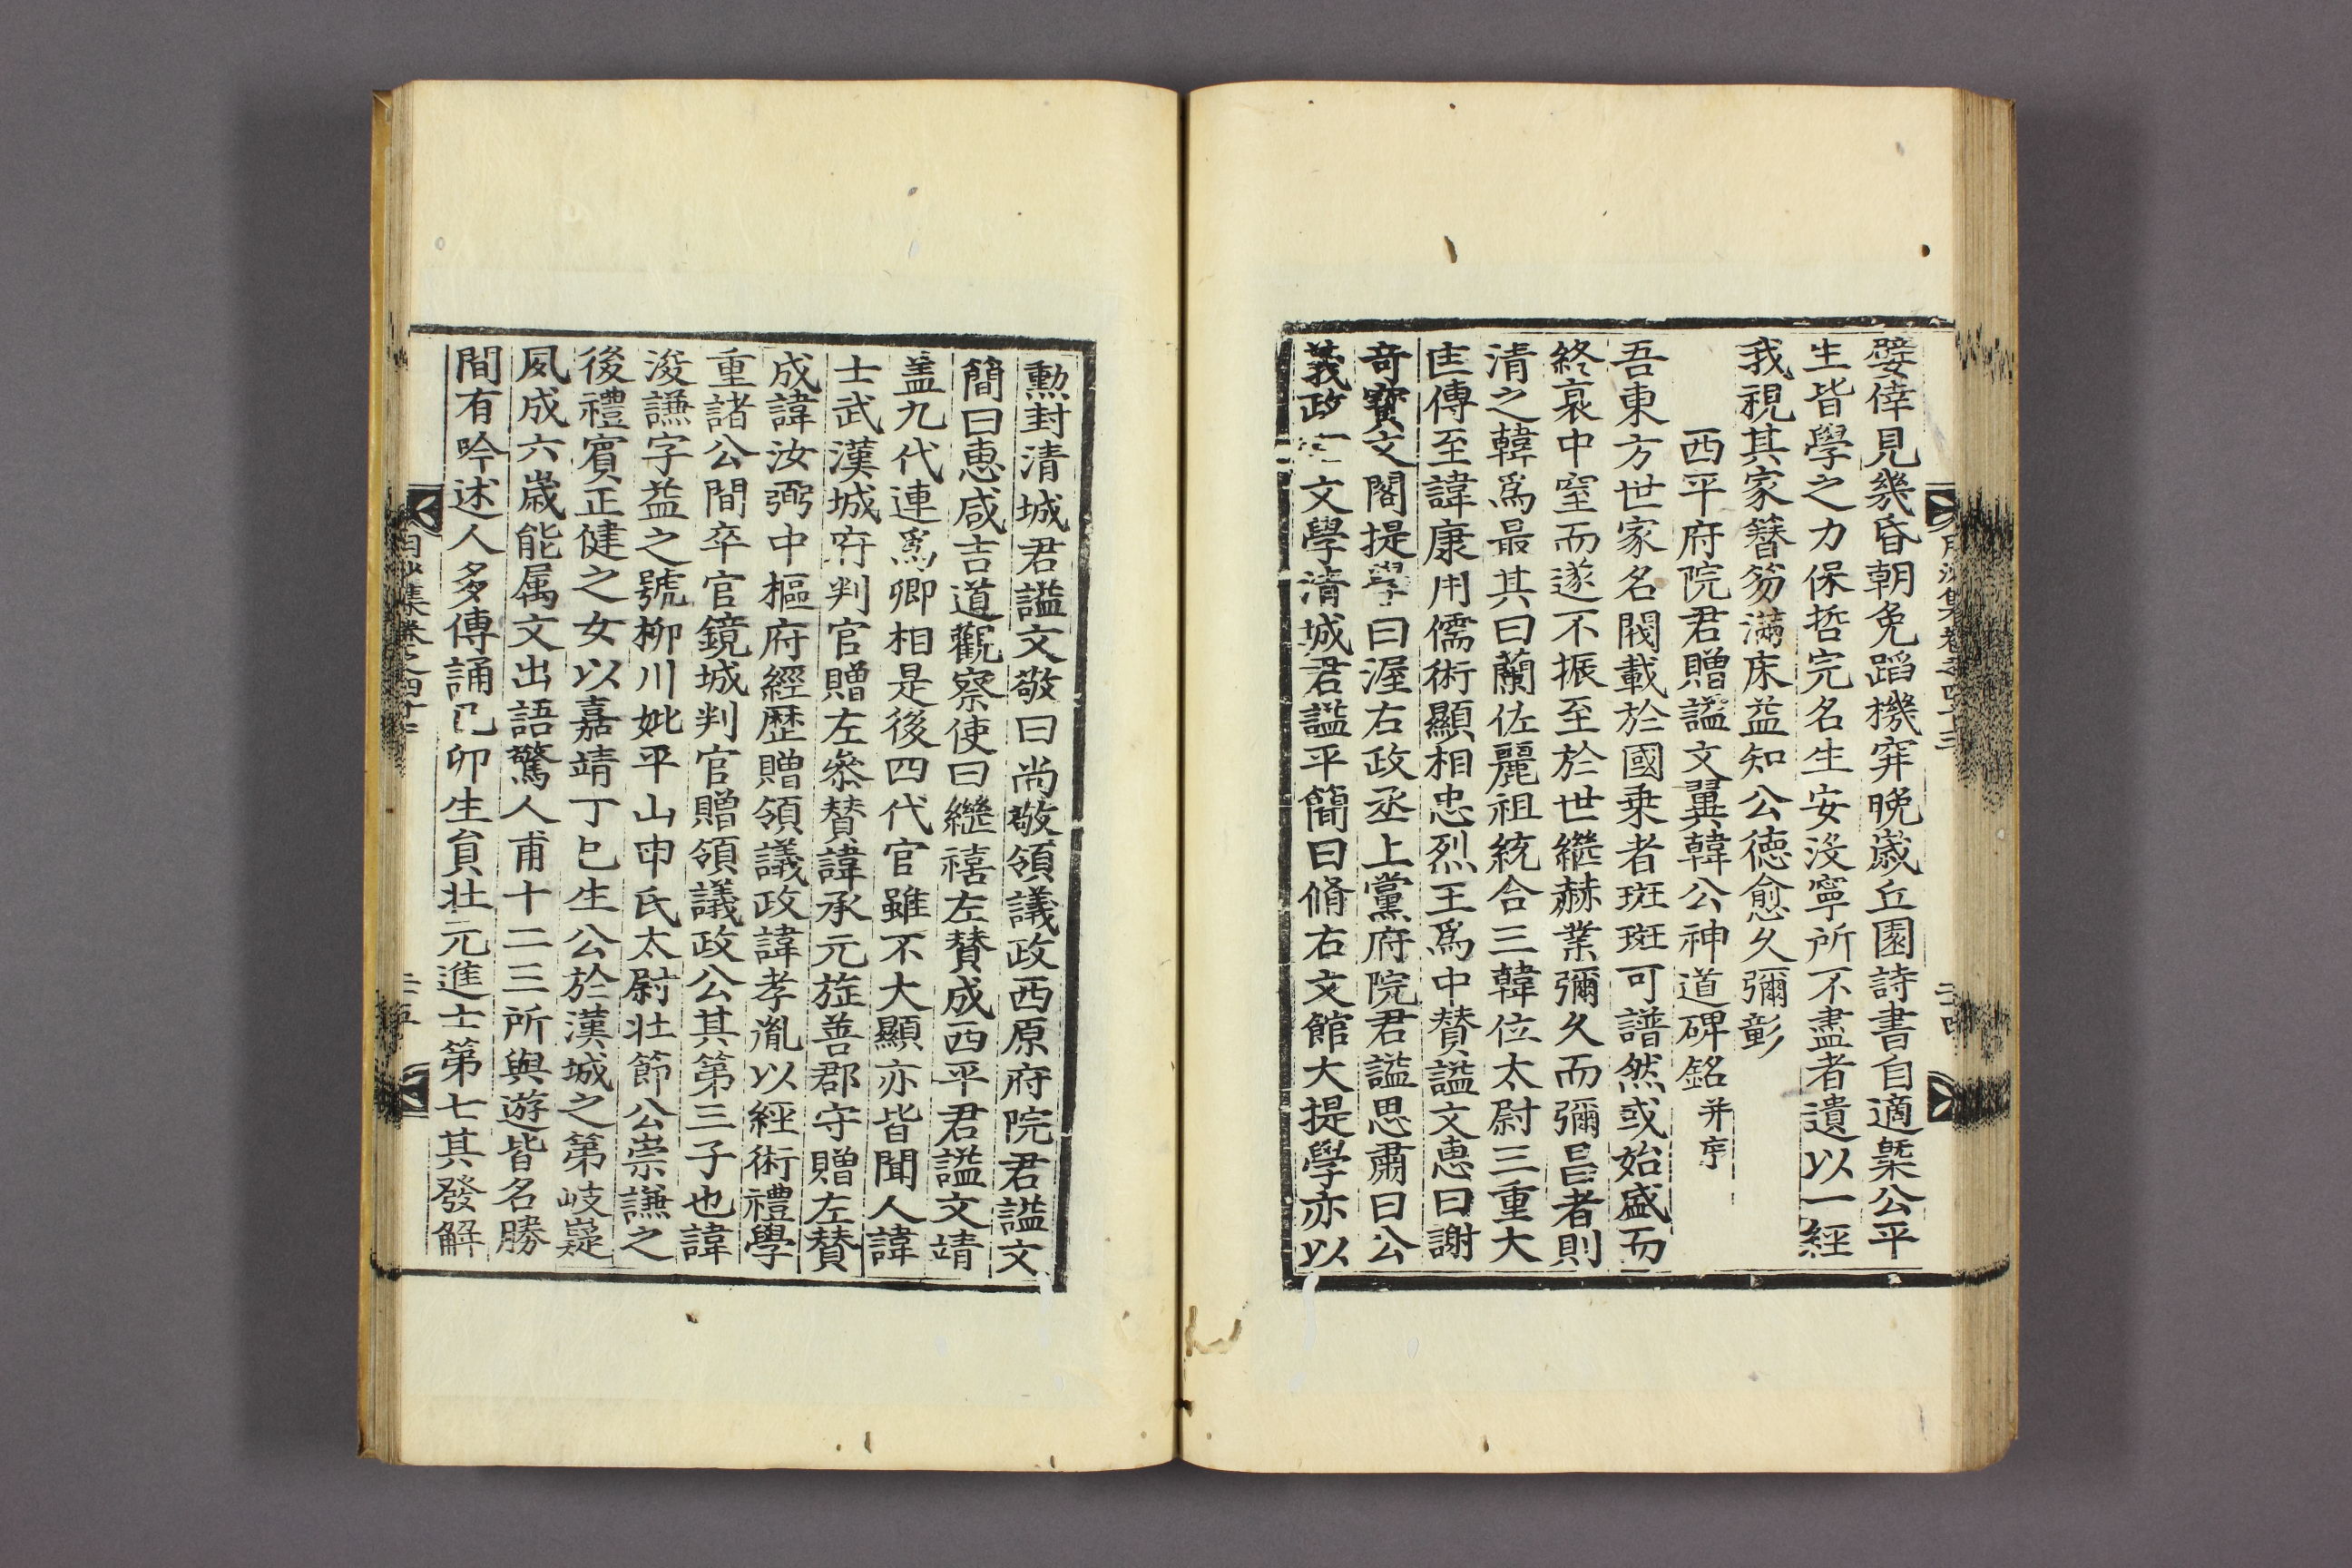 嬖倖見幾昏朝免蹈機穽晚歲丘園詩書自適槩公平
生皆學之力保哲完名生安沒寧所不盡者遺以一經
我視其家簪笏滿床益知公德愈久彌彰
西平府院君贈謚文翼韓公神道碑銘并序
吾東方世家名閥載於國乘者斑斑可譜然或始盛而
終衰中窒而遂不振至於世繼赫業彌久而彌昌者則
清之韓爲最其曰蘭佐麗祖統合三韓位太尉三重大
匡傳至諱康用儒術顯相忠烈王爲中贊謚文惠曰謝
奇寶文閣提學曰渥右政丞上黨府院君謚思肅曰公
義政堂文學清城君謚平簡曰脩右文館大提學亦以
勳封清城君謚文敬曰尚敬領議政西原府院君謚文
簡曰惠咸吉道觀察使曰繼禧左贊成西平君謚文靖
盖九代連爲卿相是後四代官雖不大顯亦皆聞人諱
士武漢城府判官贈左叅贊諱承元旌善郡守贈左贊
成諱汝弼中樞府經歷贈領議政諱孝胤以經術禮學
重諸公間卒官鏡城判官贈領議政公其第三子也諱
浚謙字益之號柳川妣平山申氏太尉壯節公崇謙之
後禮賓正健之女以嘉靖丁巳生公於漢城之第岐嶷
夙成六歲能屬文出語驚人甫十二三所與遊皆名勝
間有吟述人多傳誦己卯生員壯元進士第七其發解